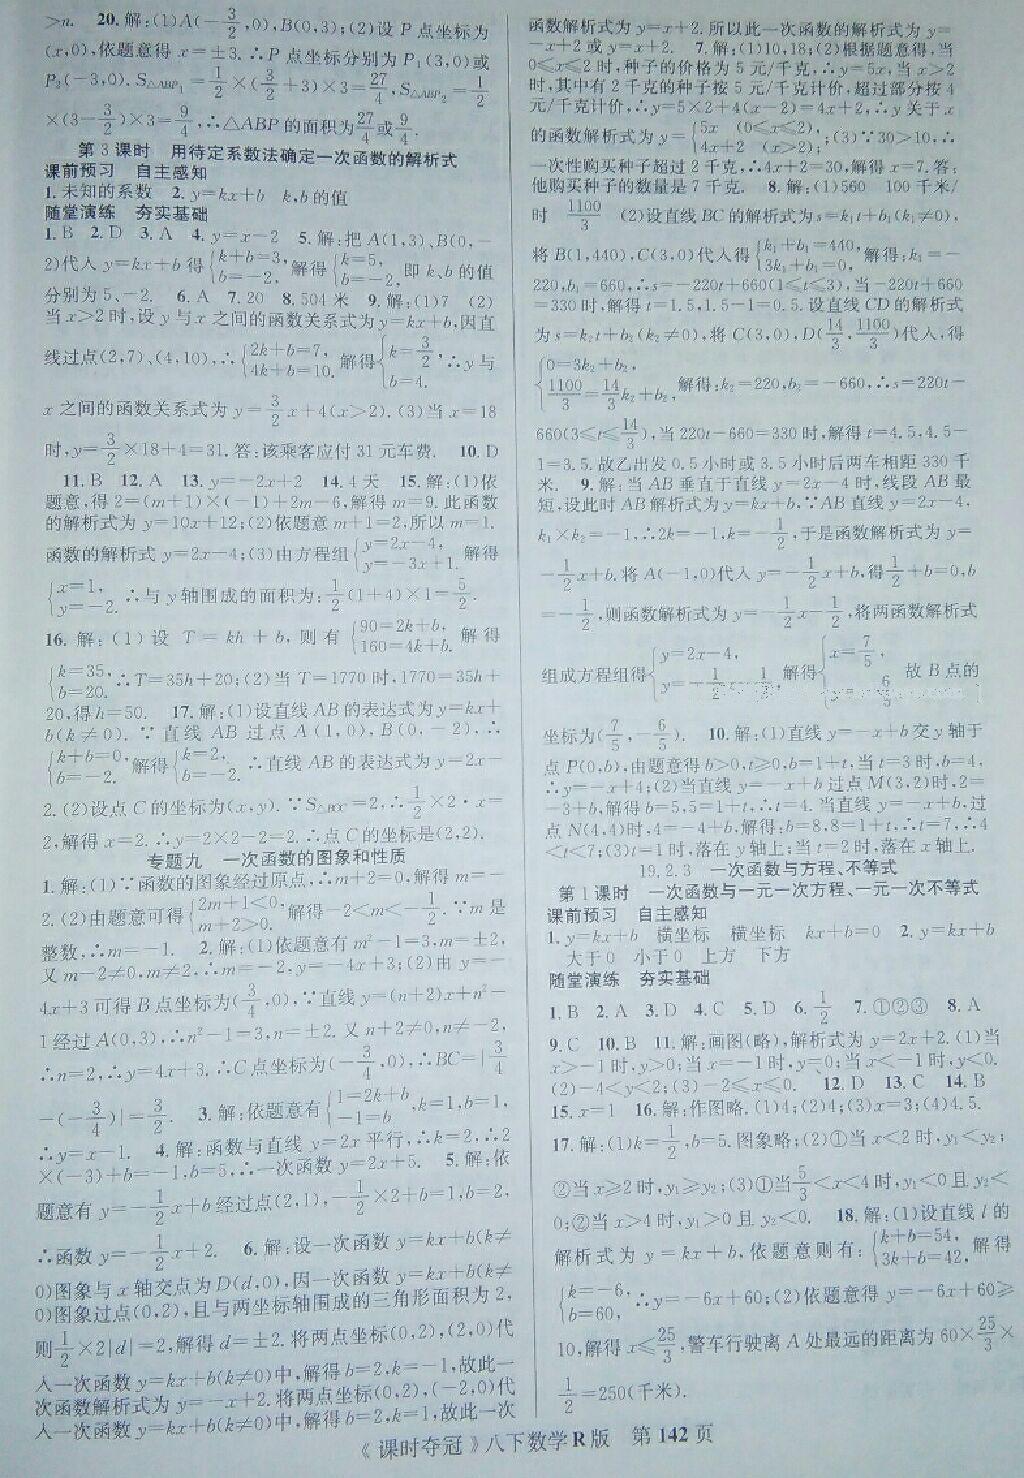 >n. 20. 解:(1)A(-3/2,0),B(0,3);(2)设 P 点坐标为
(x,0),依题意得 x=±3.∴P 点坐标分别为 P₁(3,0)或
P₂(-3,0),S△ABP₁=1/2×(3/2+3)×3=27/4,S△ABP₂=1/2
×(3-3/2)×3=9/4,∴△ABP的面积为27/4或9/4.
第 3 课时 用待定系数法确定一次函数的解析式
课前预习 自主感知
1. 未知的系数 2. y=kx+b k,b 的值
随堂演练 夯实基础
1. B 2. D 3. A 4. y=x-2 5. 解:把 A(1,3)、B(0,-
2)代入 y=kx+b 得{k+b=3, b=-2, 解得{k=5, b=-2, 即 k、b 的值
分别为 5、-2. 6. A 7. 20 8. 504 米 9. 解:(1)7 (2)
当 x>2 时,设 y 与 x 之间的函数关系式为 y=kx+b,因直
线过点(2,7)、(4,10),∴{2k+b=7, 4k+b=10. 解得{k=3/2, b=4. ∴y 与
x 之间的函数关系式为 y=3/2x+4(x>2).(3)当 x=18
时,y=3/2×18+4=31.答:该乘客应付 31 元车费. 10. D
11. B 12. A 13. y=-2x+2 14. 4 天 15. 解:(1)依
题意,得 2=(m+1)×(-1)+2m-6,解得 m=9.此函数
的解析式为 y=10x+12;(2)依题意 m+1=2,所以 m=1.
函数的解析式 y=2x-4;(3)由方程组{y=2x-4, y=-3x+1. 解得
{x=1, y=-2. ∴与 y 轴围成的面积为:1/2(1+4)×1=5/2.
16. 解:(1)设 T=kh+b,则有{90=2k+b, 160=4k+b. 解得
{k=35, b=20. ∴T=35h+20;(2)当 T=1770 时,1770=35h+
20,得 h=50. 17. 解:(1)设直线 AB 的表达式为 y=kx+
b(k≠0).∵直线 AB 过点 A(1,0),B(0,-2),∴
{k+b=0, b=-2. 解得{k=2, b=-2. ∴直线 AB 的表达式为 y=2x-
2.(2)设点 C 的坐标为(x,y).∵S△BOC=2,∴1/2×2·x=
2,解得 x=2.∴y=2×2-2=2.∴点 C 的坐标是(2,2).
专题九 一次函数的图象和性质
1. 解:(1)∵函数的图象经过原点,∴m+2=0,解得 m=-
2.(2)由题意可得{2m+1<0, m+2>0. 解得-2<m<-1/2.∵m 是
整数,∴m=-1. 2. 解:(1)依题意有 m²-1=3,m=±2,
又 m-2≠0,m≠2,∴m=-2,y=-4x+3;(2)由 y=-
4x+3 可得 B 点坐标为(3/4,0),∵直线 y=(n+2)x+n²-
1 经过 A(0,3),∴n²-1=3,n=±2.又 n+2≠0,n≠-2,
∴n=2,∴y=4x+3,∴C 点坐标为(-3/4,0),∴BC=|3/4
-(-3/4)|=3/2. 3. 解:依题意有{1=2k+b, -1=b ,k=1,b=1,
∴y=x-1. 4. 解:函数与直线 y=2x 平行,∴k=2,∴2
×(-3)+b=-1,b=5,∴一次函数 y=2x+5. 5. 解:依
题意有 y=-1/2x+b 经过点(2,1),-1/2×2+b=1,b=2,
∴函数 y=-1/2x+2. 6. 解:设一次函数 y=kx+b(k≠
0)图象与 x 轴交点为 D(d,0),因一次函数 y=kx+b(k≠
0)图象过点(0,2),且与两坐标轴围成的三角形面积为 2,
则1/2×2|d|=2,解得 d=±2.将两点坐标(0,2),(2,0)代
入一次函数 y=kx+b(k≠0)中,解得 b=2,k=-1,故此一
次函数解析式为 y=-x+2.将两点坐标(0,2),(-2,0)代
入一次函数 y=kx+b(k≠0)中,解得 b=2,k=1,故此一次
函数解析式为 y=x+2.所以此一次函数的解析式为 y=
-x+2 或 y=x+2. 7. 解:(1)10,18;(2)根据题意得,当
0≤x≤2 时,种子的价格为 5 元/千克,∴y=5x,当 x>2
时,其中有 2 千克的种子按 5 元/千克计价,超过部分按 4
元/千克计价,∴y=5×2+4(x-2)=4x+2,∴y 关于 x
的函数解析式为{5x (0≤x≤2), 4x+2 (x>2); ;(3)∵30>10,∴
一次性购买种子超过 2 千克,∴4x+2=30,解得 x=7.答:
他购买种子的数量是 7 千克. 8. 解:(1)560 100 千米/
时 1100/3 (2)设直线 BC 的解析式为 s=k₁t+b₁(k₁≠0),
将 B(1,440),C(3,0)代入得{k₁+b₁=440, 3k₁+b₁=0, 解得:k₁=-
220,b₁=660,∴s=-220t+660(1≤t≤3),当-220t+660
=330 时,解得 t=1.5,1.5-1=0.5.设直线 CD 的解析式
为 s=k₂t+b₂(k₂≠0),将 C(3,0),D(14/3,1100/3)代入,得
{0=3k₂+b₂, 1100/3=14/3k₂+b₂, 解得:k₂=220,b₂=-660,∴s=220t-
660(3≤t≤14/3),当 220t-660=330 时,解得 t=4.5,4.5-
1=3.5.故乙出发 0.5 小时或 3.5 小时后两车相距 330 千
米. 9. 解:当 AB 垂直于直线 y=2x-4 时,线段 AB 最
短,设此时 AB 解析式为 y=kx+b,∵AB 直线 y=2x-4,
k₁×k₂=-1,∴2k=-1,k=-1/2,于是函数解析式为 y=
-1/2x+b.将 A(-1,0)代入 y=-1/2x+b,得1/2+b=0,b
=-1/2,则函数解析式为 y=-1/2x-1/2,将两函数解析式
组成方程组得{y=2x-4, y=-1/2 1/2, 解得{x=7/5, 6/5 故 B 点的
坐标为(7/5,-6/5). 10. 解:(1)直线 y=-x+b 交 y 轴于
点 P(0,b),由题意得 b>0,t≥0,b=1+t,当 t=3 时,b=4,
∴y=-x+4;(2)当直线 y=-x+b 过点 M(3,2)时,2=
-3+b,解得 b=5,5=1+t,∴t=4.当直线 y=-x+b,过
点 N(4,4)时,4=-4+b,解得:b=8,8=1+t,∴t=7,∴4
<t<7;(3)t=1 时,落在 y 轴上;当 t=2 时,落在 x 轴上.
19.2.3 一次函数与方程、不等式
第 1 课时 一次函数与一元一次方程、一元一次不等式
课前预习 自主感知
1. y=kx+b 横坐标 横坐标 kx+b=0 2. y=kx+b
大于 0 小于 0 上方 下方
随堂演练 夯实基础
1. B 2. A 3. D 4. C 5. D 6. 1/2 7. ①②③ 8. A
9. C 10. B 11. 解:画图(略),解析式为 y=2x+2.(1)当
x>-1 时,y>0;当 x=-1 时,y=0;当 x<-1 时,y<0.
(2)-4<y<2;(3)-2≤x≤0. 12. D 13. C 14. B
15. x=1 16. 解:作图略.(1)4;(2)4;(3)x=3;(4)4.5.
17. 解:(1)k=1/2,b=5.图象略;(2)①当 x<2 时,y₁<y₂;
②当 x≥2 时,y₁≥y₂;(3)①当5/3<x<4 时,y₁<0 且 y₂<
0;②当 x>4 时,y₁>0 且 y₂<0. 18. 解:(1)设直线 l 的
解析式为 y=kx+b,依题意则有:{k+b=54, 3k+b=42, 解得
{k=-6, b=60, ∴y=-6x+60;(2)依题意得 y=-6x+60≥
10,解得 x≤25/3,警车行驶离 A 处最远的距离为 60×25/3×
1/2=250(千米).
《课时夺冠》八下数学 R 版 第 142 页